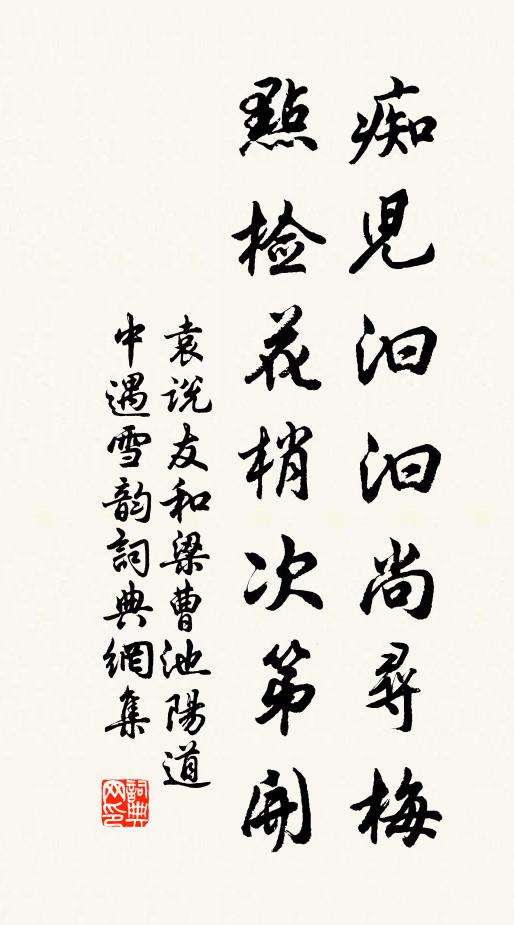 痴児汩汩尚尋梅
點檢花梢次第開
袁说友和梁曹池陽道
中遇雪韵詞典網集
詞典網印